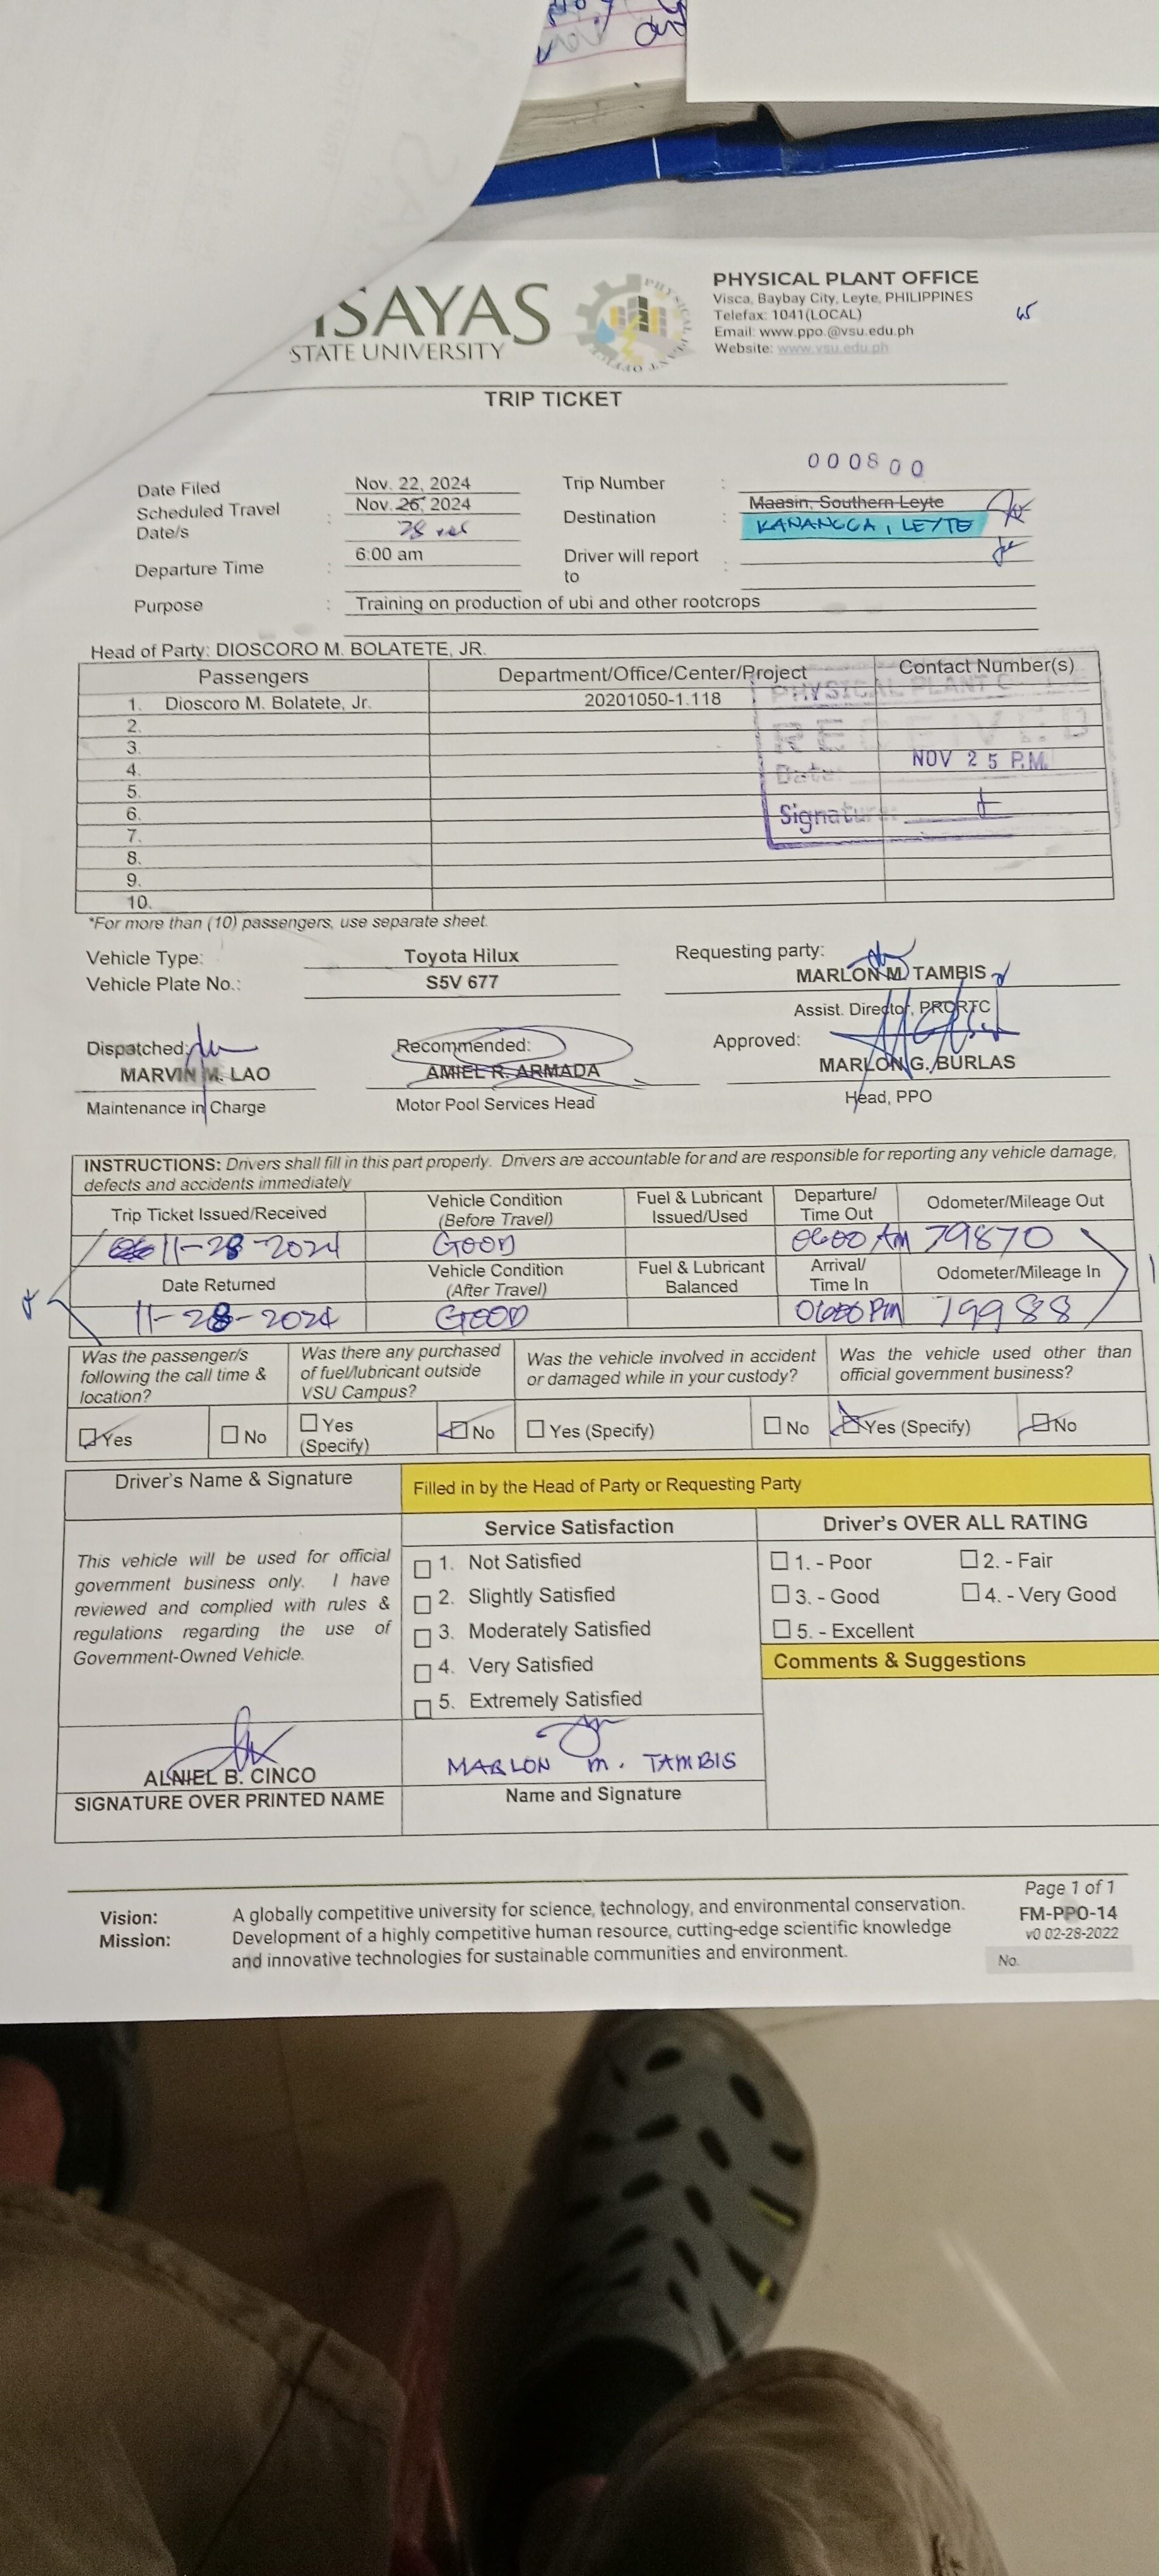 ISAYAS
STATE UNIVERSITY
PHYSICAL PLANT OFFICE
Visca, Baybay City, Leyte, PHILIPPINES
Telefax: 1041(LOCAL)
Email: www.ppo.@vsu.edu.ph
Website: www.vsu.edu.ph
TRIP TICKET
000800
Date Filed Nov. 22, 2024 Trip Number :
Scheduled Travel Date/s : Nov. 26, 2024 28
Destination : Maasin, Southern Leyte
KANANGGA, LEYTE
Departure Time 6:00 am Driver will report to :
Purpose : Training on production of ubi and other rootcrops
Head of Party: DIOSCORO M. BOLATETE, JR.
Passengers Department/Office/Center/Project Contact Number(s)
1. Dioscoro M. Bolatete, Jr. 20201050-1.118
2.
3.
4.
5.
6.
7.
8.
9.
10.
PHYSICAL PLANT
RECEIVED
Date: NOV 25 P.M.
Signature:
*For more than (10) passengers, use separate sheet.
Vehicle Type: Toyota Hilux
Vehicle Plate No.: S5V 677
Requesting party:
MARLON M. TAMBIS
Assist. Director, PRCRTC
Dispatched:
MARVIN M. LAO
Maintenance in Charge
Recommended:
AMIEL R. ARMADA
Motor Pool Services Head
Approved:
MARLON G. BURLAS
Head, PPO
INSTRUCTIONS: Drivers shall fill in this part properly. Drivers are accountable for and are responsible for reporting any vehicle damage,
defects and accidents immediately
Trip Ticket Issued/Received Vehicle Condition (Before Travel) Fuel & Lubricant Issued/Used Departure/ Time Out Odometer/Mileage Out
11-28-2024 GOOD 0600 AM 79870
Date Returned Vehicle Condition (After Travel) Fuel & Lubricant Balanced Arrival/ Time In Odometer/Mileage In
11-28-2024 GOOD 0600 PM 79988
Was the passenger/s following the call time & location?
Was there any purchased of fuel/lubricant outside VSU Campus?
Was the vehicle involved in accident or damaged while in your custody?
Was the vehicle used other than official government business?
Yes No Yes (Specify) No Yes (Specify) No Yes (Specify) No
Driver's Name & Signature
Filled in by the Head of Party or Requesting Party
Service Satisfaction Driver's OVER ALL RATING
This vehicle will be used for official
government business only. I have
reviewed and complied with rules &
regulations regarding the use of
Government-Owned Vehicle.
1. Not Satisfied
2. Slightly Satisfied
3. Moderately Satisfied
4. Very Satisfied
5. Extremely Satisfied
1. - Poor 2. - Fair
3. - Good 4. - Very Good
5. - Excellent
Comments & Suggestions
ALNIEL B. CINCO
SIGNATURE OVER PRINTED NAME
MARLON M. TAMBIS
Name and Signature
Page 1 of 1
FM-PPO-14
v0 02-28-2022
No.
Vision: A globally competitive university for science, technology, and environmental conservation.
Mission: Development of a highly competitive human resource, cutting-edge scientific knowledge
and innovative technologies for sustainable communities and environment.